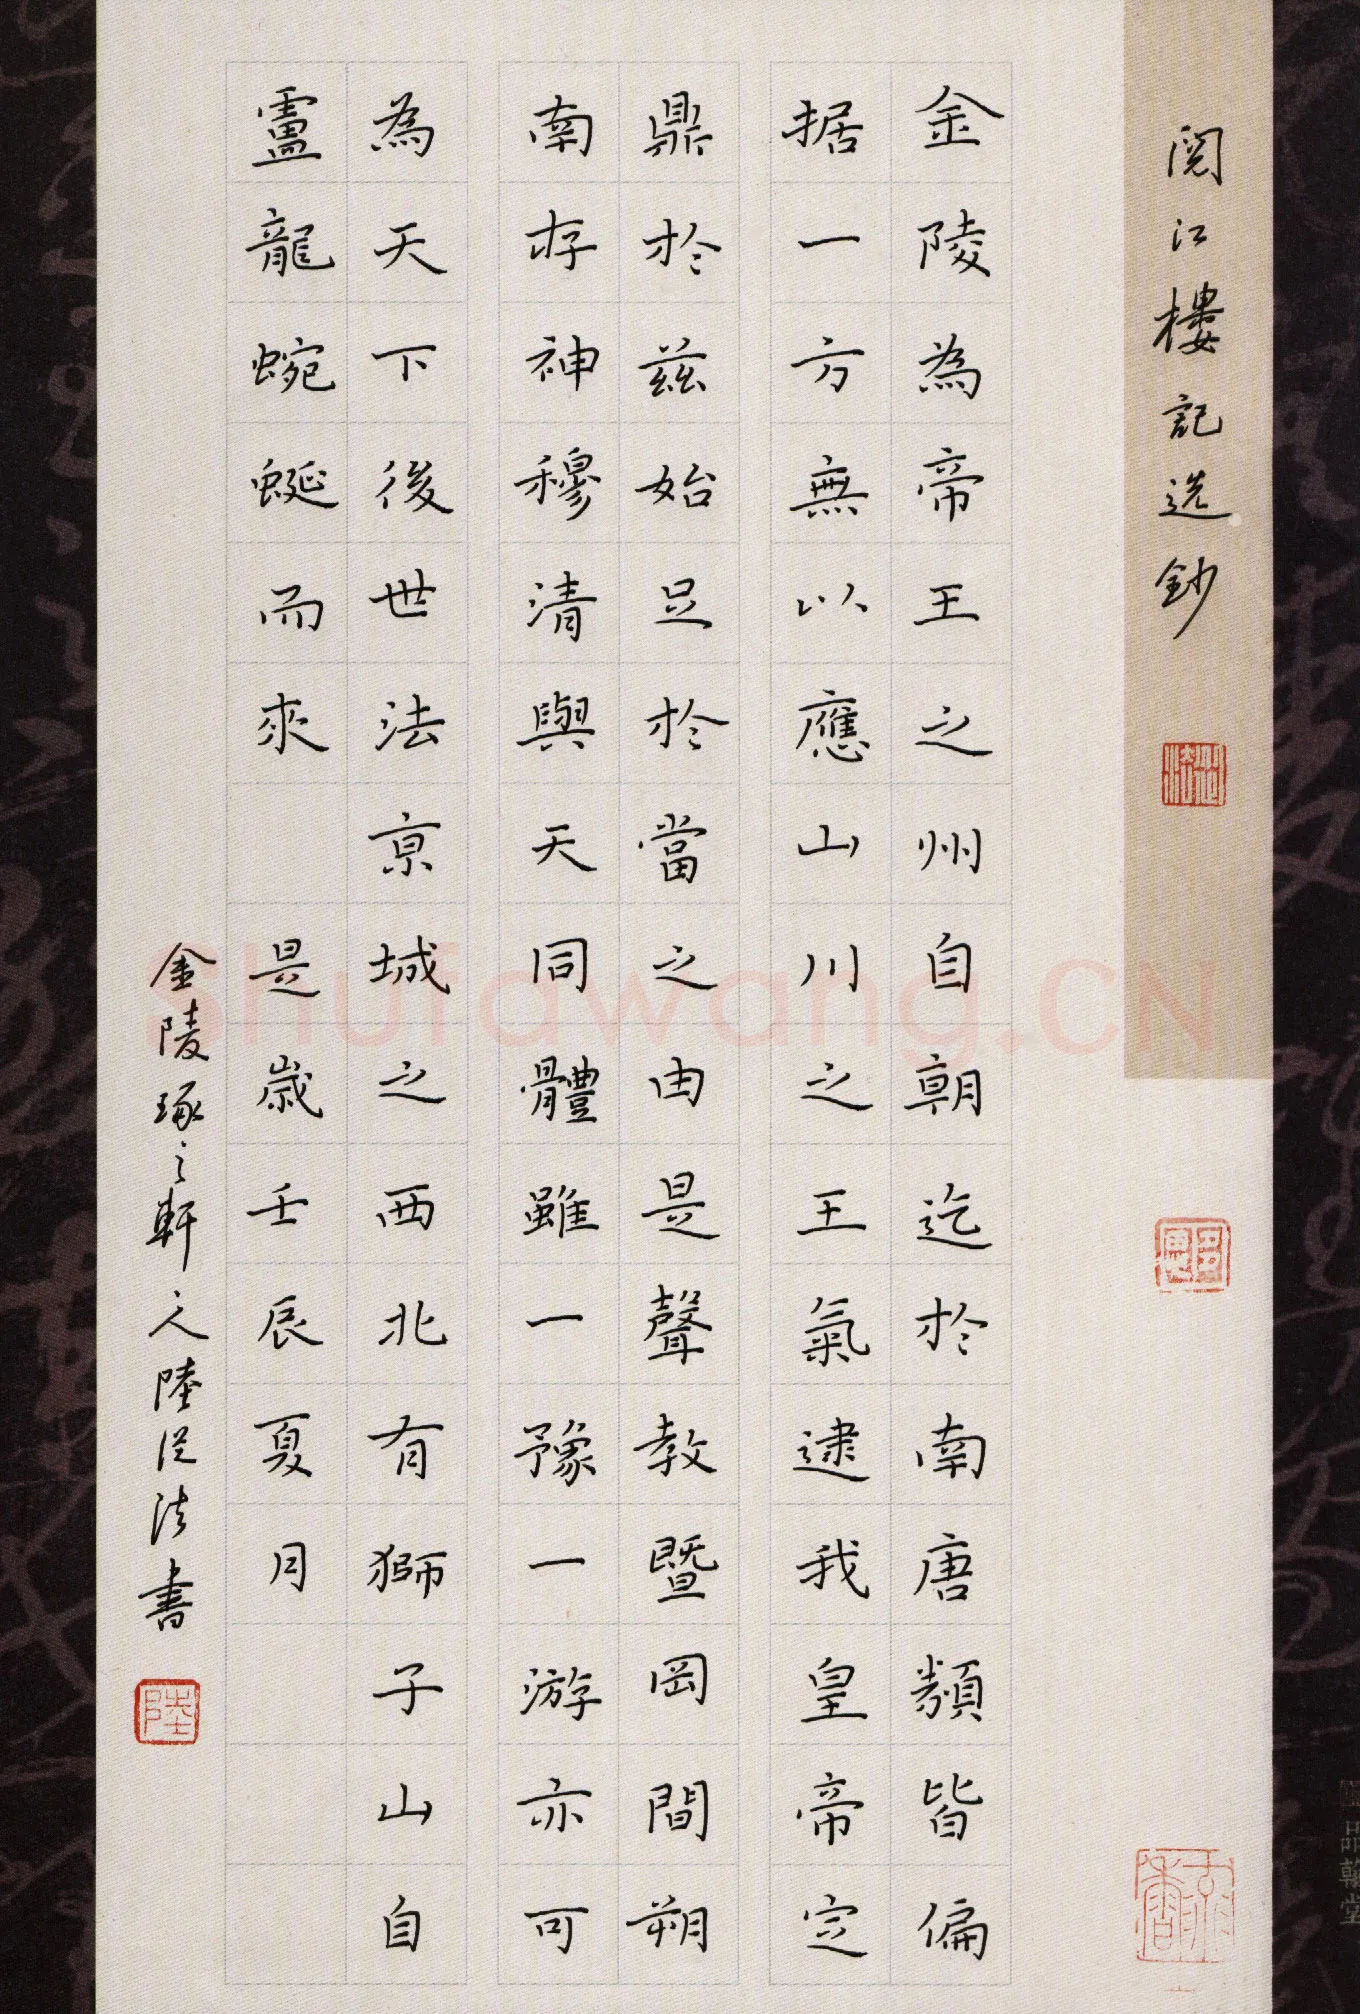 阅江樓記选鈔
金陵為帝王之州自六朝迄於南唐類皆偏
据一方無以應山川之王氣逮我皇帝定
鼎於兹始足於當之由是聲教暨罔間朔
南存神穆清與天同體雖一豫一游亦可
為天下後世法京城之西北有獅子山自
盧龍蜿蜒而來 是歲壬辰夏月
金陵琢之軒主人陸從法書
陸
Shufawang.CN
品翰堂